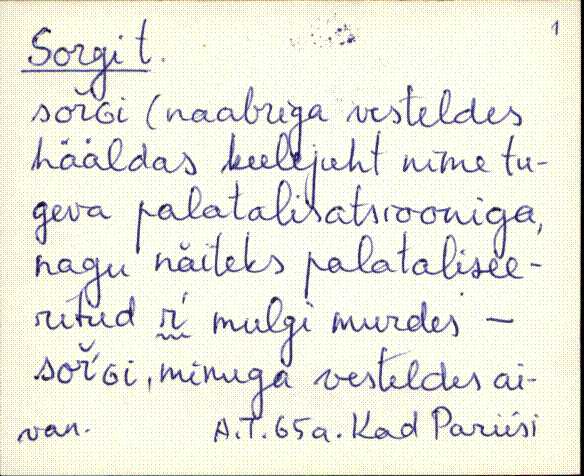 1
Sorgi t.
sořGi (naabriga vesteldes
hääldas keelejuht nime tu-
geva palatalisatsiooniga,
nagu näiteks palatalisee-
ritud ŕ mulgi murdes —
soř́Gi, minuga vesteldes ai-
van. A.T. 65 a. Kad Pariisi